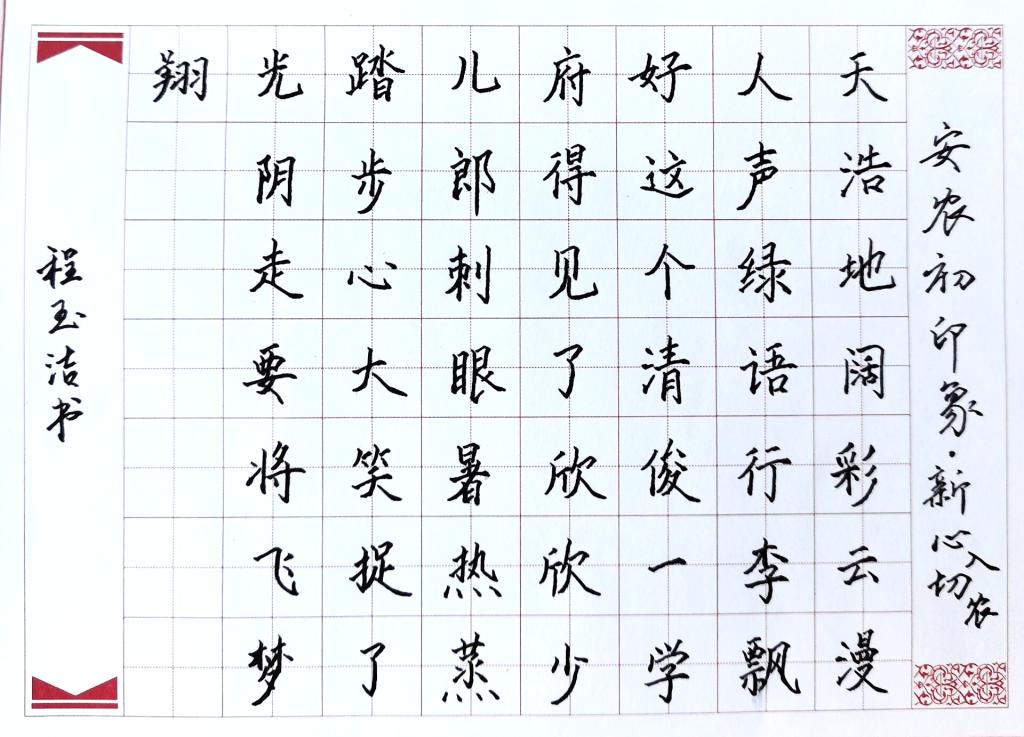 安农初印象·新心切入农
天浩地阔彩云漫
人声绿语行李飘
好这个清俊一学
府得见了欣欣少
儿郎刺眼暑热蒸
踏步心大笑捉了
光阴走要将飞梦
翔
程玉洁书